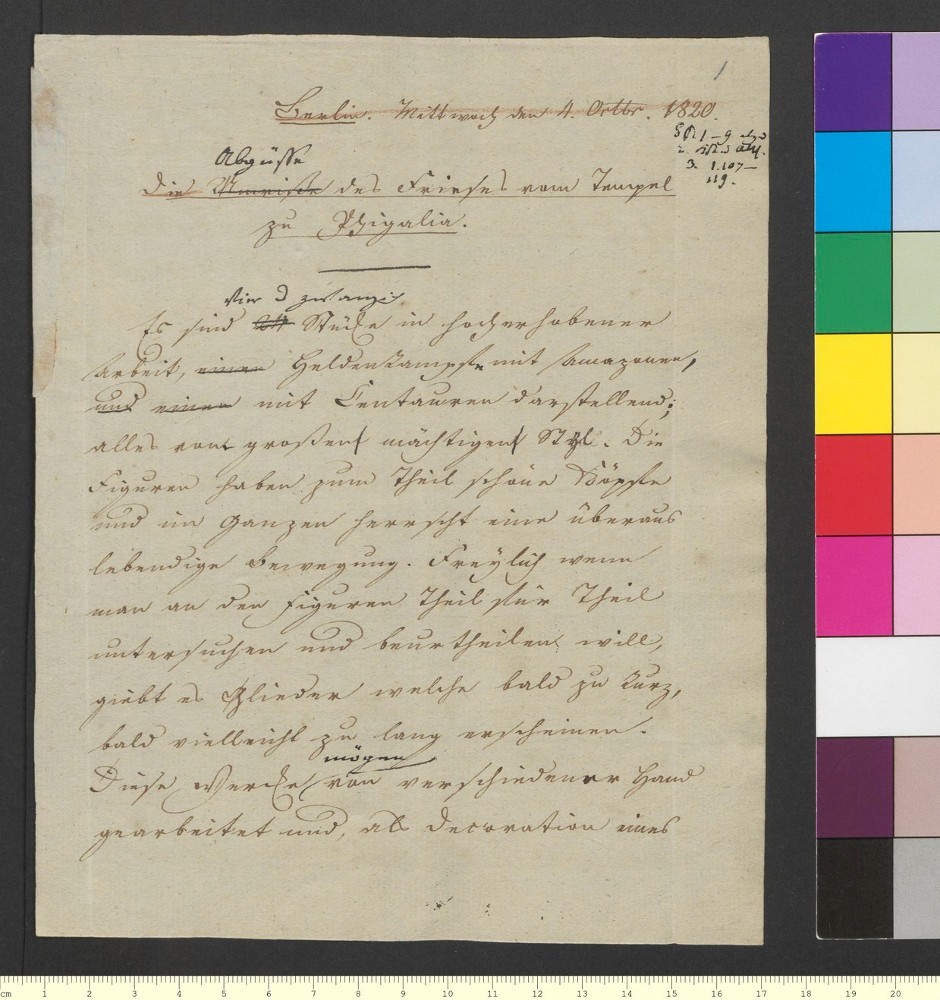 1
Berlin. Mittwoch den 4. Octbr. 1820.
1 – 9
2.
3. 1.107 –
119.
Abgüsse
Die Umrisse des Frieses vom Tempel
zu Phigalia.
Vier u zwanzig
Es sind Stücke in hocherhobener
Arbeit, einen Heldenkampfe mit Amazonen,
und einen mit Centauren darstellend;
alles vom großen mächtigen Styl. Die
Figuren haben zum Theil schöne Köpfe
und im Ganzen herrscht eine überaus
lebendige Bewegung. Freylich wenn
man an den Figuren Theil für Theil
untersuchen und beurtheilen will,
giebt es Glieder welche bald zu kurz,
bald vielleicht zu lang erscheinen.
mögen
Diese Wercke von verschiedener Hand
gearbeitet und, als Decoration eines